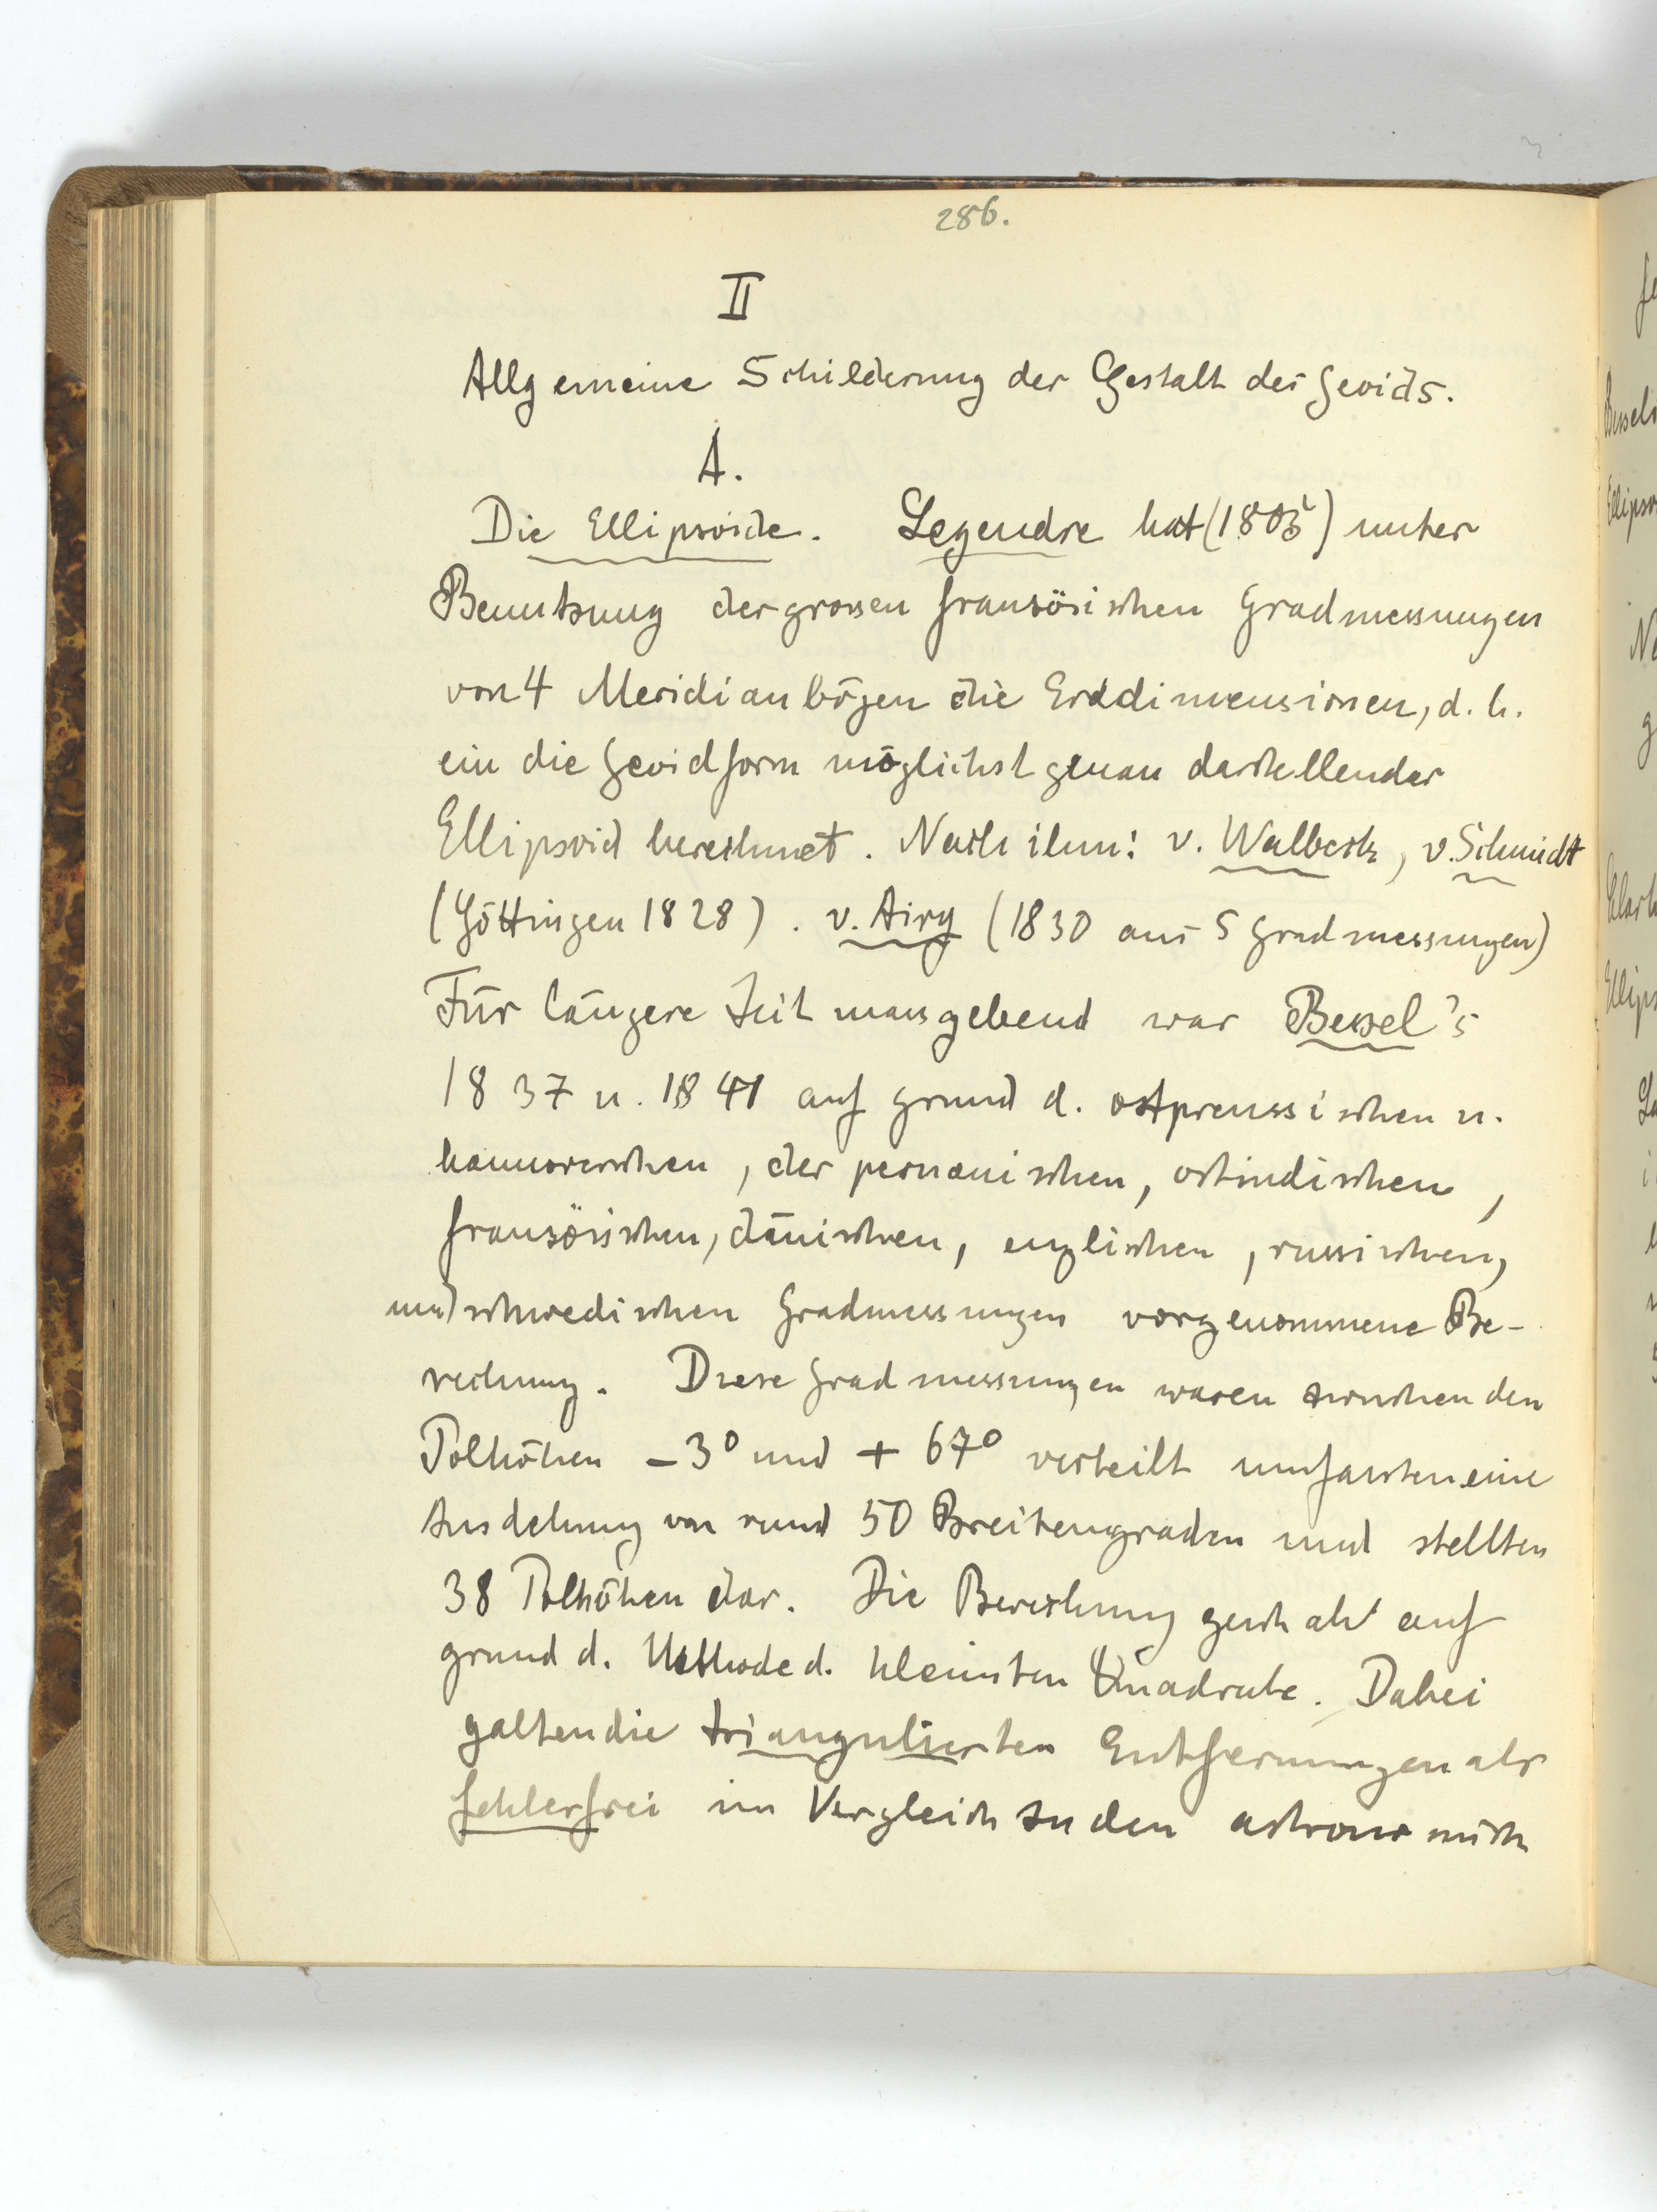 286.
II
Allgemeine Schilderung der Gestalt des Geoids.
A.
Die Ellipsoide. Legendre hat (1805) unter
Benutzung der grossen französischen Gradmessungen
von 4 Meridianbögen die Erddimensionen, d. h.
ein die Geoidform möglichst genau darstellendes
Ellipsoid berechnet. Nach ihm: v. Walbeck, v. Schmidt
(Göttingen 1828). v. Airy (1830 aus 5 Gradmessungen)
Für längere Zeit massgebend war Bessel's
1837 u. 1841 auf grund d. ostpreussischen u.
hannoverschen, der peruanischen, ostindischen,
französischen, dänischen, englischen, russischen,
und schwedischen Gradmessungen vorgenommene Be-
rechnung. Diese Gradmessungen waren zwischen den
Polhöhen -3° und + 67° verteilt umfassten eine
Ausdehnung von rund 50 Breitengraden und stellten
38 Polhöhen dar. Die Berechnung geschah auf
grund d. Methode d. kleinsten Quadrate. Dabei
galten die triangulierten Entfernungen als
fehlerfrei im Vergleich zu den astronomisch